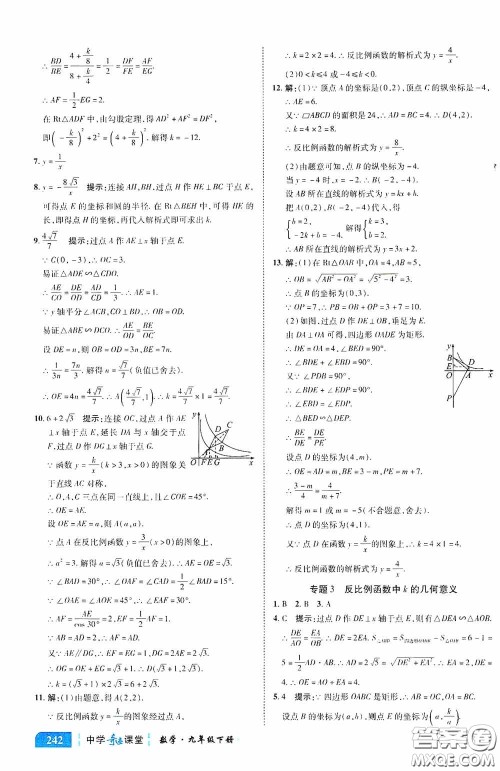 ∴ BD/BE = (4+k/8)/(4+k/8) = 1/2 = DF/FE = AF/EG.
∴ AF = 1/2 ·EG = 2.
在 Rt△ADF 中,由勾股定理,得 AD² + AF² = DF².
即(-k/8)² + 2² = (4+k/8)². 解得 k = -12.
7. y = 1/x
提示:连接 AH,BH,过点 H 作 HE⊥BC 于点 E,
可得点 E 的坐标和圆的半径. 在 Rt△BEH 中,可得 HE 的
长,即得点 H 的坐标,再代入解析式即可求出 k.
9. 4√7/7 提示:过点 A 作 AE⊥x 轴于点 E.
∵ C(0,-3),∴ OC = 3.
易证△ADE∽△CDO.
∴ AE/CO = DE/OD = AD/CD = 1/3. ∴ AE = 1.
∵ y 轴平分∠ACB,CO⊥BD,∴ BO = OD.
易证△ABE∽△DCO. ∴ AE/OD = BE/OC.
设 DE = n,则 BO = OD = 3n,BE = 7n.
∴ 1/3n = 7n/3. 解得 n = √7/7(负值已舍去).
∴ OE = 4n = 4√7/7. ∴ A(4√7/7,1). ∴ k = 4√7/7 × 1 = 4√7/7.
10. 6+2√3 提示:连接 OC,过点 A 作 AE
⊥x 轴于点 E,延长 DA 与 x 轴交于点
F,过点 D 作 DG⊥x 轴于点 G.
∵ 函数 y = k/x (k>3,x>0)的图象关
于直线 AC 对称,
∴ O,A,C 三点在同一直线上,且∠COE = 45°.
∴ OE = AE.
设 OE = AE = a,则 A(a,a).
∵ 点 A 在反比例函数 y = 3/x (x>0)的图象上,
∴ a² = 3. 解得 a = √3(负值已舍去). ∴ AE = OE = √3.
∵ ∠BAD = 30°,∴ ∠OAF = ∠CAD = 1/2∠BAD = 15°.
∵ ∠OAE = ∠AOE = 45°,∴ ∠EAF = 30°.
∴ AF = AE/cos 30° = 2. ∴ EF = 1/2 AF = 1.
∵ AB = AD = 2,∴ AF = AD = 2.
又∵ AE∥DG,∴ EF = EG = 1,DG = 2AE = 2√3.
∴ OG = OE + EG = √3 + 1. ∴ D(√3+1,2√3).
∴ k = 2√3 × (√3+1) = 6+2√3.
11. 解:(1)由题意,得 A(2,2).
∵ 反比例函数 y = k/x 的图象经过点 A,
242 中学 课堂 数学·九年级下册
∴ k = 2×2 = 4. ∴ 反比例函数的解析式为 y = 4/x.
(2)0<k≤4 或 -4≤k<0.
12. 解:(1)∵ 顶点 A 的坐标是(0,2),顶点 C 的纵坐标是 -4,
∴ AE = 6.
又∵ ▱ABCD 的面积是 24,∴ AD = 4. ∴ D(4,2).
∴ k = 4×2 = 8.
∴ 反比例函数的解析式为 y = 8/x.
(2)由题意可知,点 B 的纵坐标为 -4.
当 y = -4 时,x = -2. ∴ B(-2,-4).
设 AB 所在直线的解析式为 y = kx + b.
把 A(0,2),B(-2,-4)代入,得
{b = 2, -2k + b = -4. 解得{k = 3, b = 2.
∴ AB 所在直线的解析式为 y = 3x + 2.
13. 解:(1)在 Rt△OAB 中,OA = 4,AB = 5,
∴ OB = √(AB² - OA²) = √(5² - 4²) = 3.
∴ 点 B 的坐标为(0,3).
(2)∵ OP = 7,∴ PB = OB + OP = 3 + 7 = 10.
(2)如图,过点 D 作 DE⊥OB,垂足为 E.
由 DA⊥OA 可得,四边形 OADE 为矩形.
∴ DE = OA = 4,∠BED = 90°.
∴ ∠BDE + ∠EBD = 90°.
又∵ ∠BDP = 90°,
∴ ∠BDE + ∠EDP = 90°.
∴ ∠EBD = ∠EDP.
∴ △BED∽△DEP.
∴ BE/DE = DE/PE.
设点 D 的坐标为(4,m).
∴ OE = AD = m,BE = 3 - m,PE = m + 7.
∴ (3-m)/4 = 4/(m+7).
解得 m = 1 或 m = -5(不合题意,舍去).
∴ 点 D 的坐标为(4,1).
又∵ 点 D 在函数 y = k/x 的图象上,∴ k = 4×1 = 4.
专题 3 反比例函数中 k 的几何意义
1. B 2. B 3. A
4. C 提示:过点 D 作 DE⊥x 轴于点 E,则有△DEA∽△AOB.
5. 4 提示:∵ 四边形 OABC 是矩形,∴ AB = OC,BC = OA.
设点 B 的坐标为(a,b),则点 E 的坐标为(a,k/a).